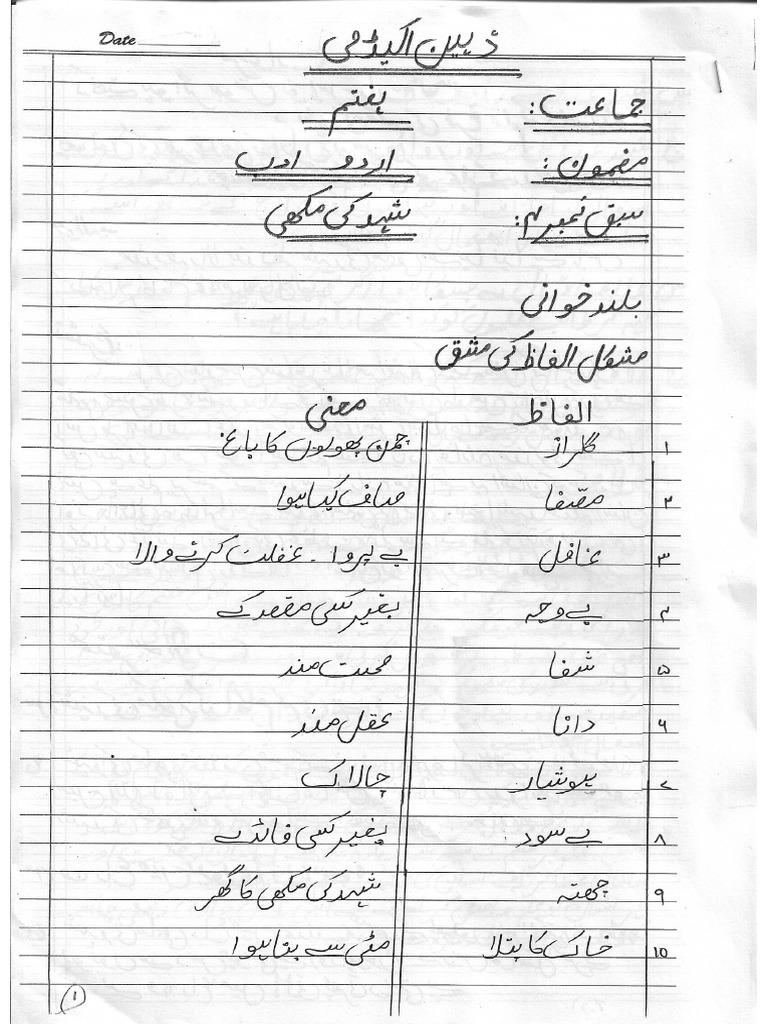 Date
ذہین اکیڈمی
جماعت: ہفتم
مضمون: اردو ادب
سبق نمبر ۴: شہد کی مکھی
بلند خوانی
مشکل الفاظ کی مشق
الفاظ معنی
۱ گلزار چمن پھولوں کا باغ
۲ مصفا صاف کیا ہوا
۳ غافل بے پروا ۔ غفلت کرنے والا
۴ بے وجہ بغیر کسی مقصد کے
۵ شفا صحت مند
۶ دانا عقل مند
۷ ہوشیار چالاک
۸ بے سود بغیر کسی فائدے
۹ چھتہ شہد کی مکھی کا گھر
۱۰ خاک کا پتلا مٹی سے بنا ہوا
۱